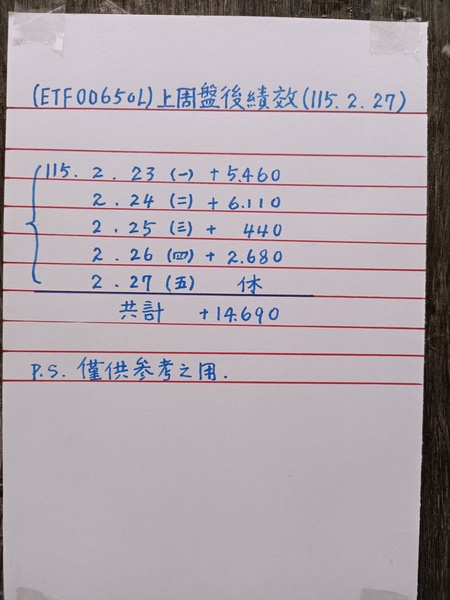 (ETF00650L)上周盤後績效(115.2.27)
115. 2 . 23 (一) + 5.460
2 . 24 (二) + 6.110
2 . 25 (三) + 440
2 . 26 (四) + 2.680
2 . 27 (五) 休
共計 +14.690
P.S. 僅供參考之用.